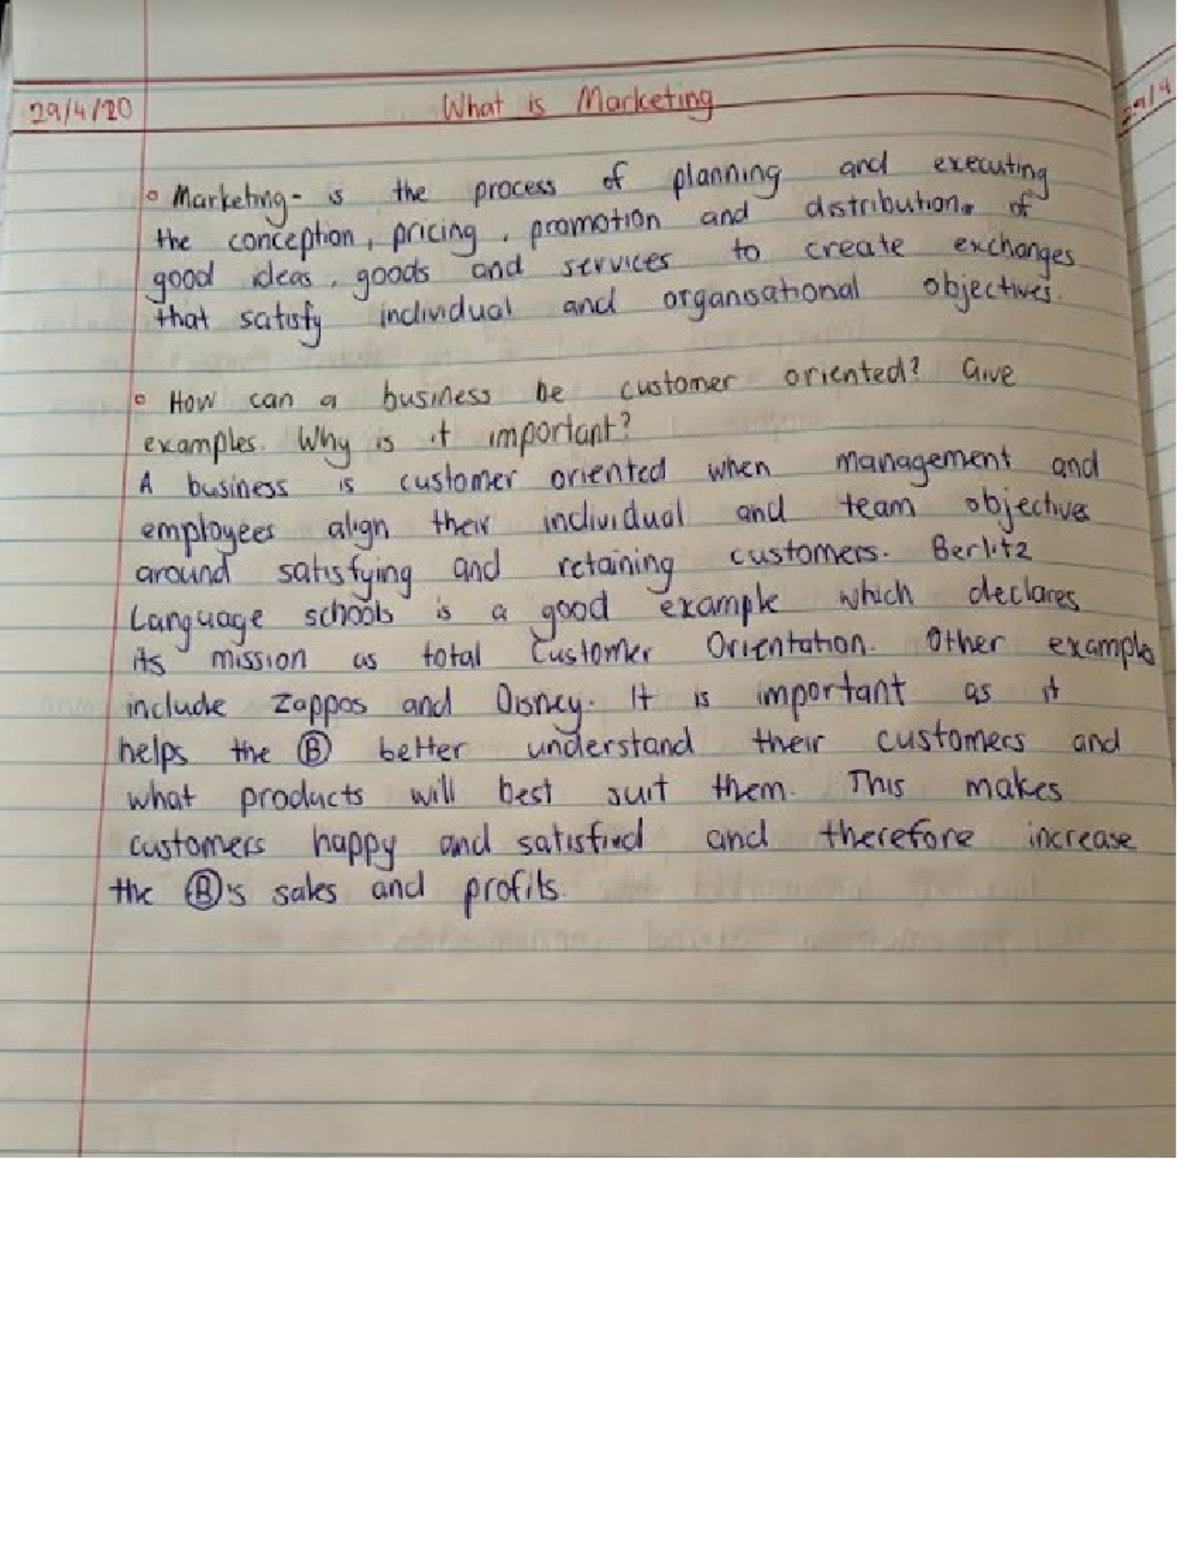 29/4/20 What is Marketing
• Marketing - is the process of planning and executing
the conception, pricing, promotion and distribution. of
good ideas, goods and services to create exchanges
that satisfy individual and organisational objectives.
• How can a business be customer oriented? Give
examples. Why is it important?
A business is customer oriented when management and
employees align their individual and team objectives
around satisfying and retaining customers. Berlitz
Language schools is a good example which declares
its mission as total Customer Orientation. Other examples
include Zappos and Disney. It is important as it
helps the Ⓑ better understand their customers and
what products will best suit them. This makes
customers happy and satisfied and therefore increase
the Ⓑ's sales and profits.